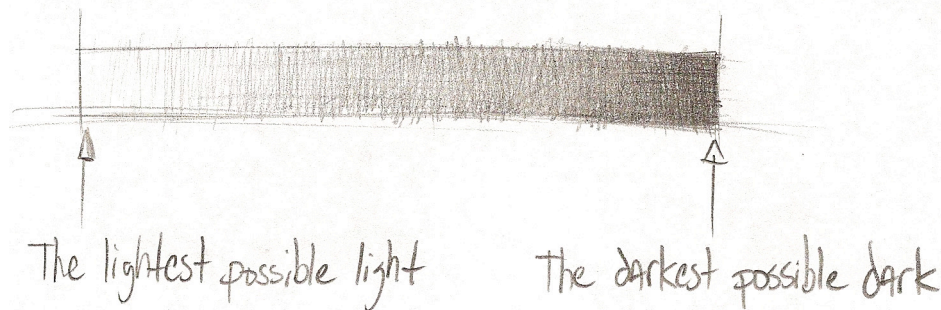 The lightest possible light
The darkest possible dark